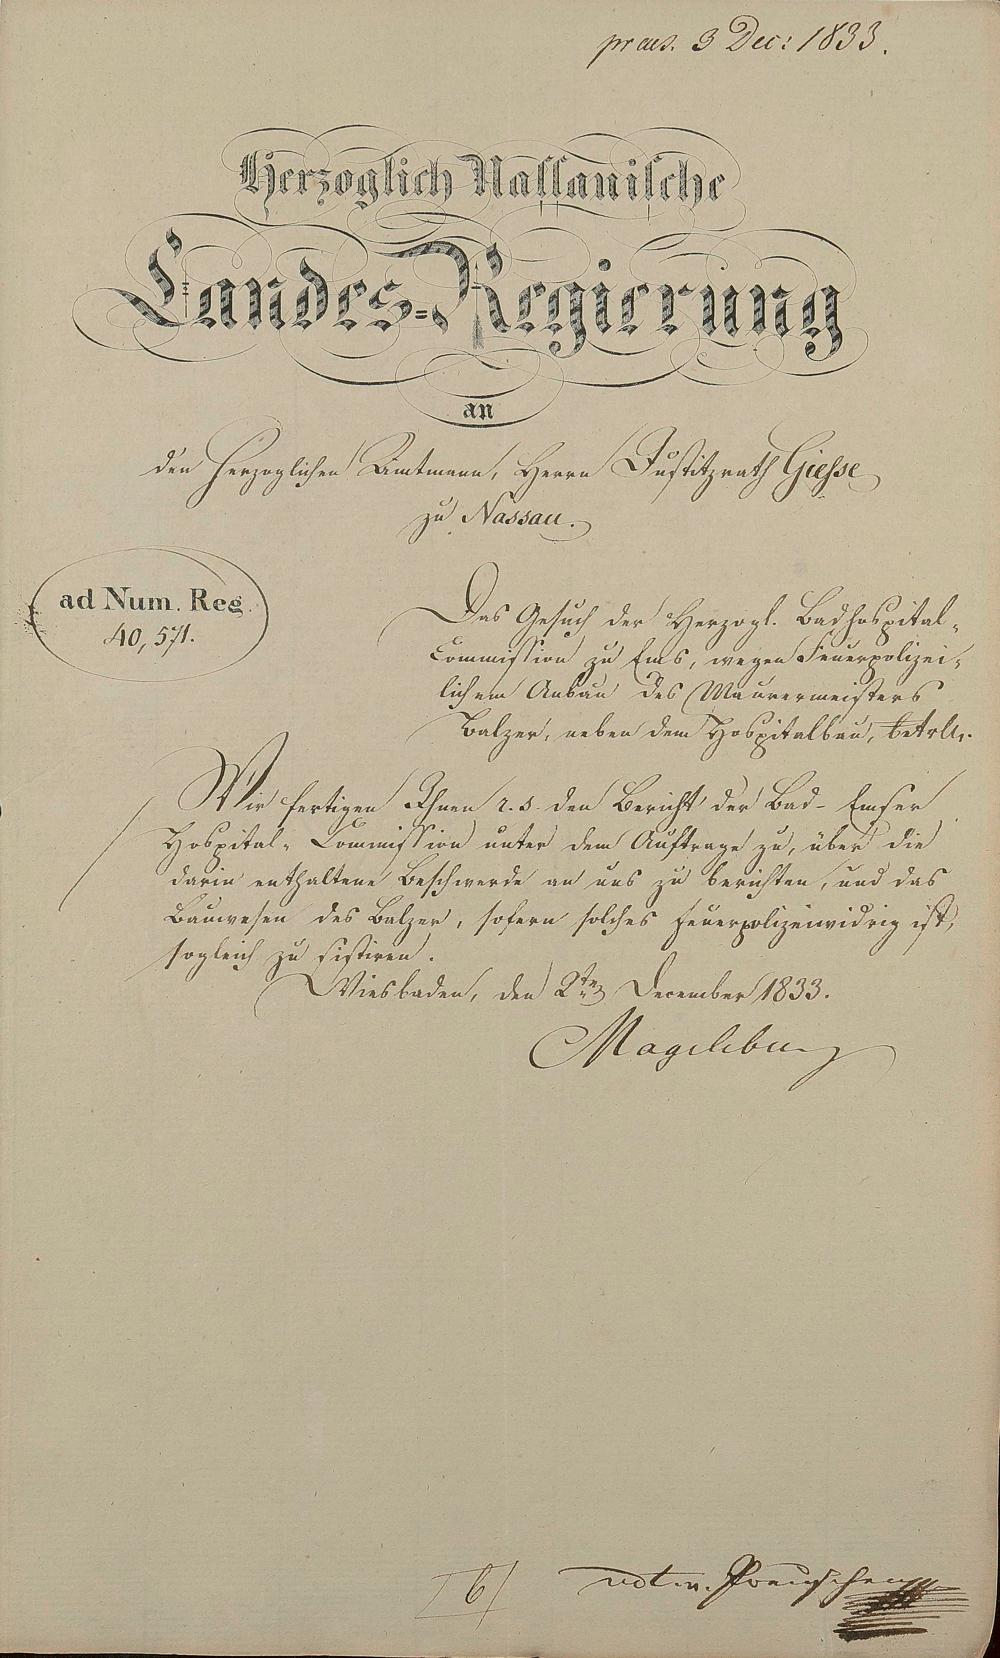 praes. 3 Dec: 1833.
Herzoglich Nassauische
Landes=Regierung
an
den Herzoglichen Amtmann, Herrn Justitzrath Giesse
zu Nassau.
ad Num. Reg
40,571.
Das Gesuch der Herzogl. Badhospital-
Commission zu Ems, wegen Feuerpolizei-
lichem Anbau des Maurermeisters
Balzer, neben dem Hospitalbau, betrll.
Wir fertigen Ihnen r. s. den Bericht der Bad-Emser
Hospital-Commission unter dem Auftrage zu, über die
darin enthaltene Beschwerde an uns zu berichten, und das
Bauwesen des Balzer, sofern solches feuerpolizeiwidrig ist,
sogleich zu sistiren.
Wiesbaden, den 2ten December 1833.
Magdeburg
6
vdt. v. Preuschen